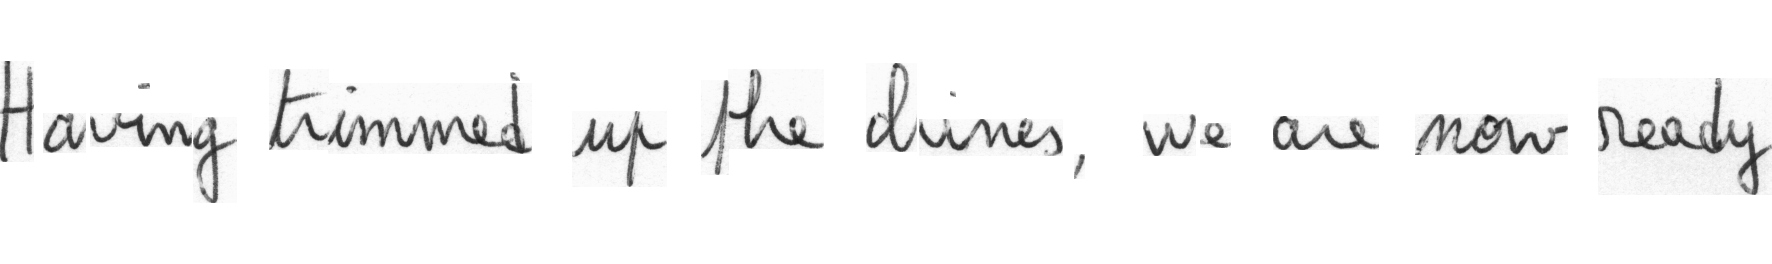 Having trimmed up the chines, we are now ready